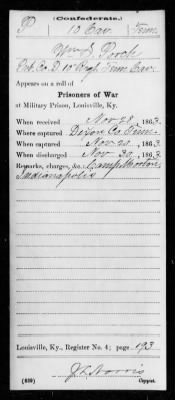 (Confederate.)
P 10 Cav. Tenn.
Wm J. Porch
Pvt. Co. D. 10 Regt. Tenn Cav.
Appears on a roll of
Prisoners of War
at Military Prison, Louisville, Ky.
When received Nov 28, 1863.
Where captured Dixon Co. Tenn.
When captured Nov 20, 1863.
When discharged Nov 30, 1863.
Remarks, charges, &c., Camp Morton
Indianapolis
Louisville, Ky., Register No. 4; page 193
Norris
(639) Copyist.